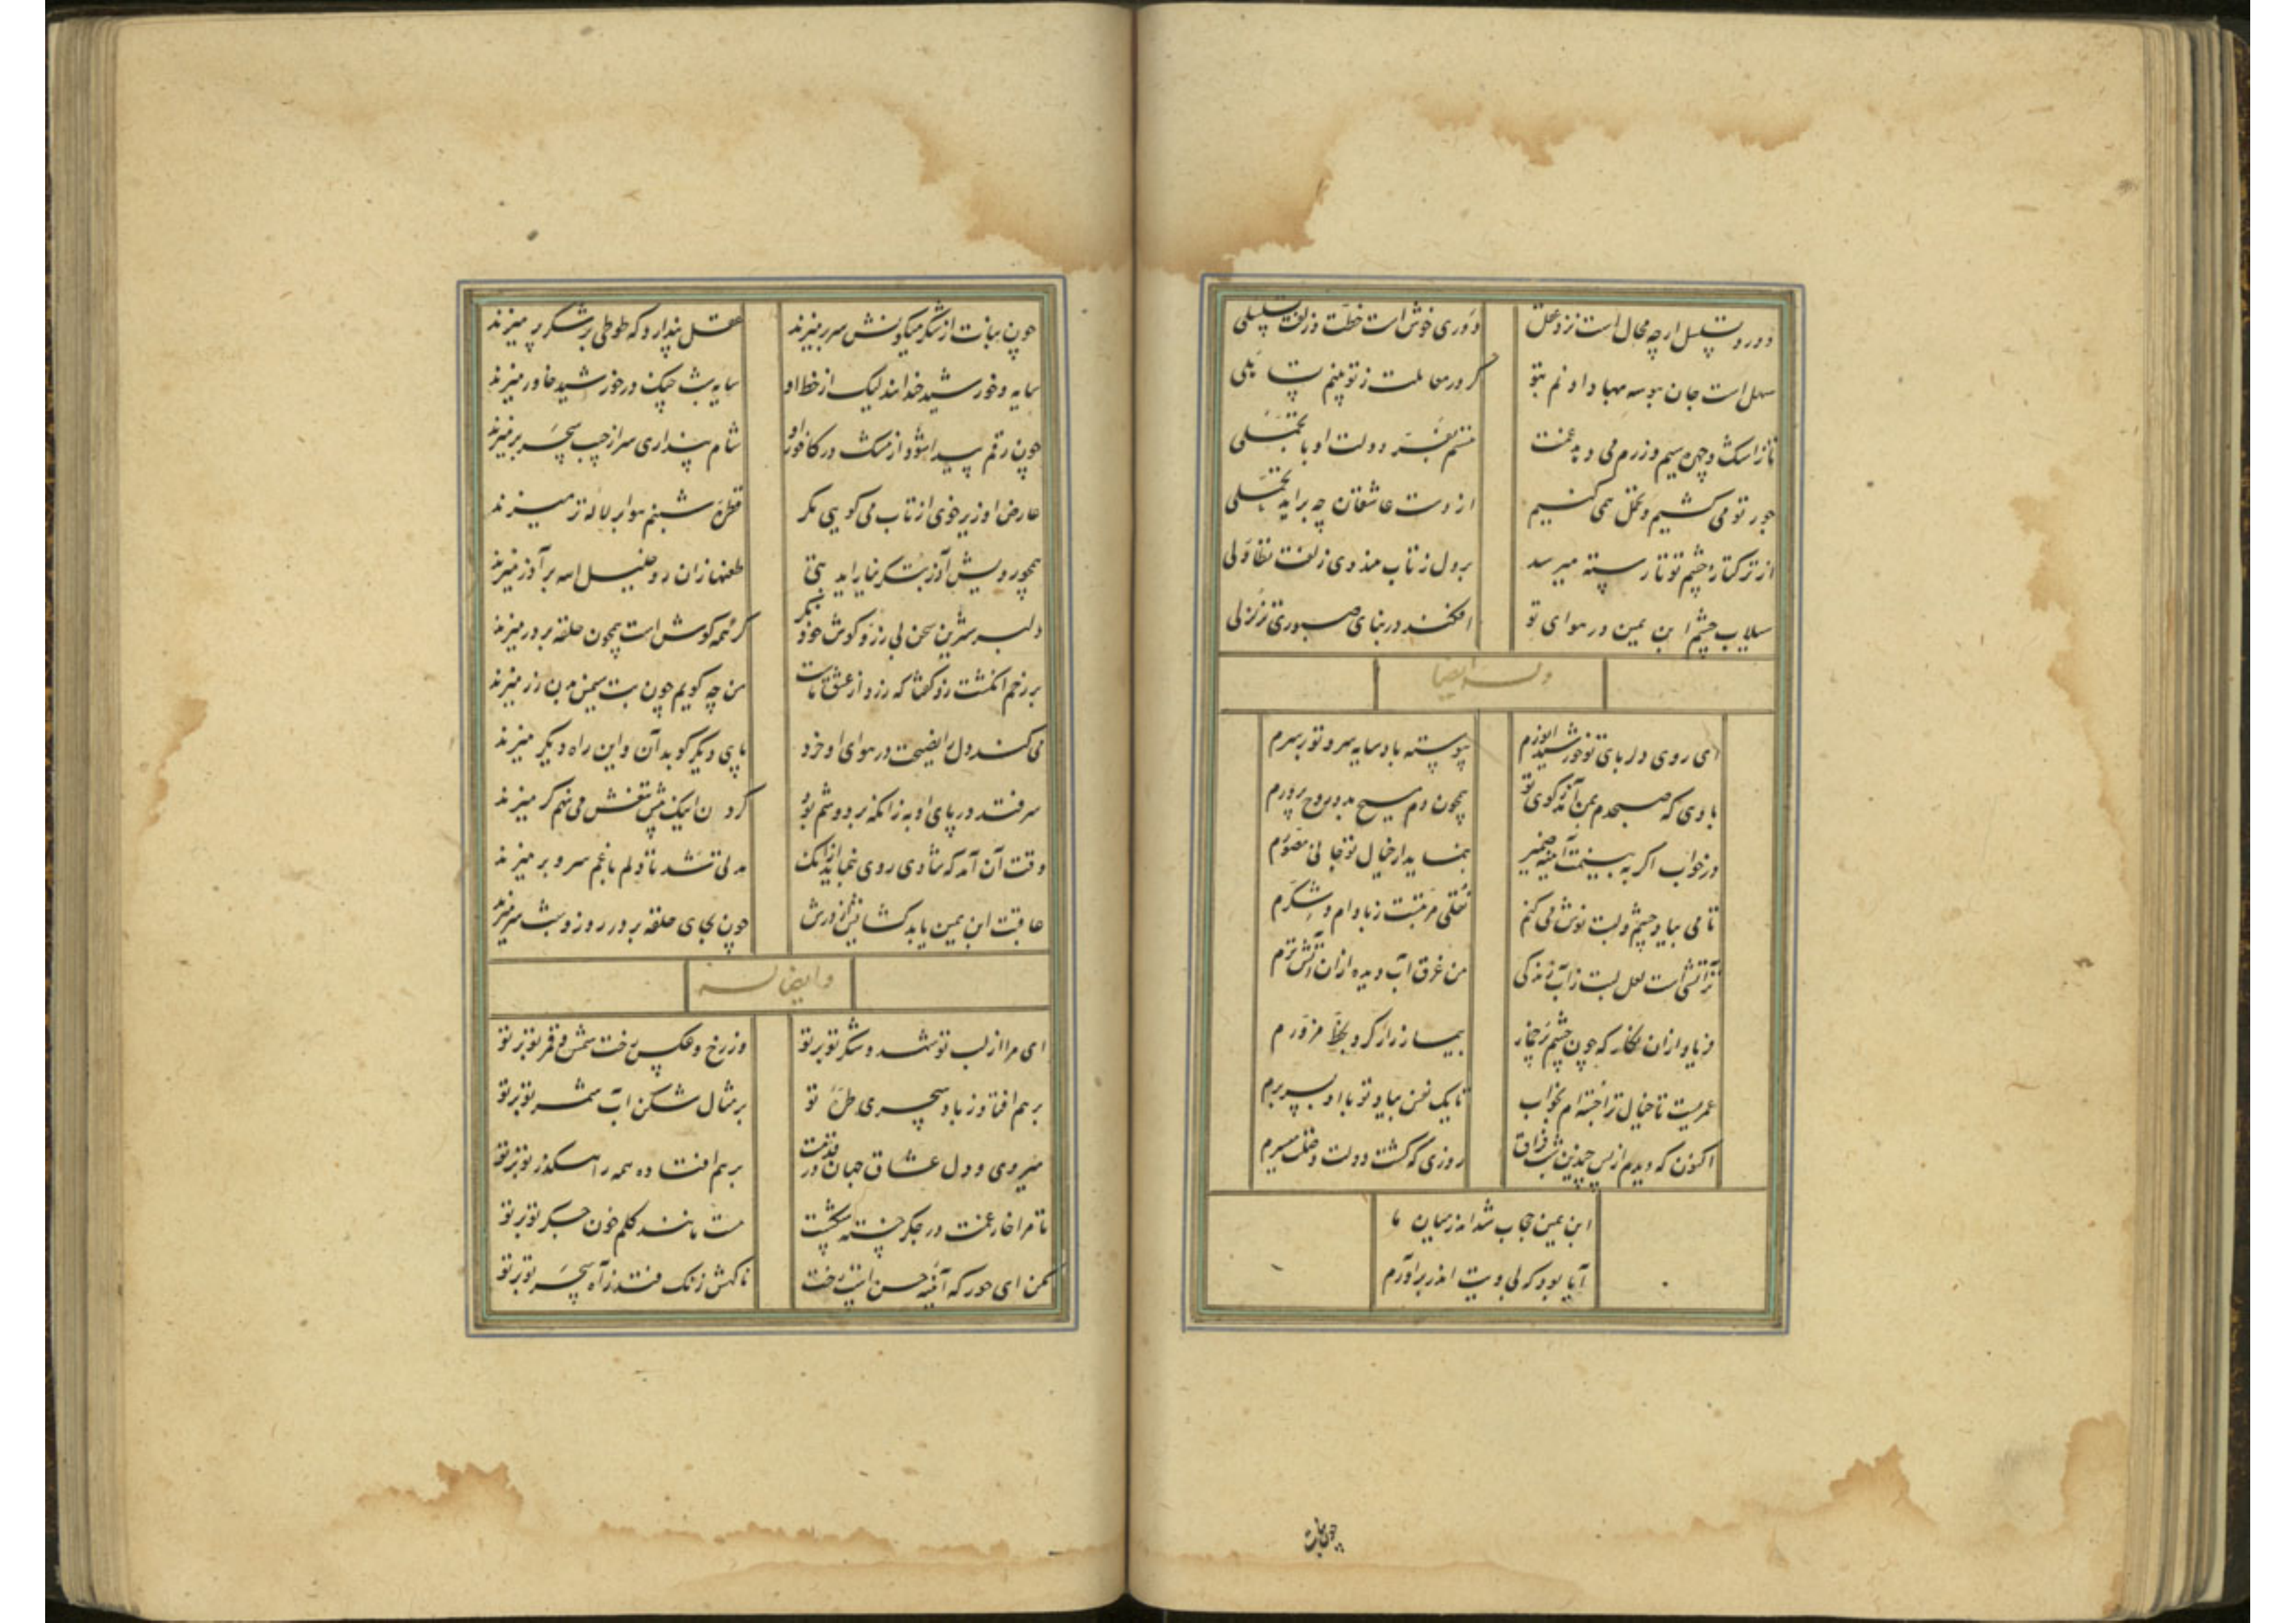 دور و تسلسل ارچه محال است نزد عقل
دوری خوش است خطت و زلفت تسلسلی
سهل است جان ببوسه مهیا دادنم بتو
گر در معاملت ز تو بینم تساهلی
تا ز اشک و چهره سیم و زرم می دهد غمت
هستم بفر دولت او با تجملی
جور تو می کشیم و تحمل همی کنیم
از دست عاشقان چه براید تحملی
از ترکتاز چشم تو تا رسته میرسد
بر دل ز تاب هندوی زلفت تطاولی
سیلاب چشم ابن یمین در هوای تو
افکند در بنای صبوری تزلزلی
وله ایضا
ای روی دلربای تو خورشید انورم
پیوسته باد سایه سرو تو بر سرم
بادی که صبحدم بمن آرد ز کوی تو
همچون دم مسیح بدو روح پرورم
در خواب اگر به بینمت آیینه ضمیر
بنماید از خیال تو جانی مصورم
تا می بیاد چشم و لبت نوش می کنم
نقلی مرتبست ز بادام و شکرم
تر آتشی است لعل لبت ز آب زندگی
من غرق آب دیده از آن آتش ترم
فریاد از آن نگار که چون چشم پر خمار
بیمار زار کرد بخط مزورم
عمریست تا خیال ترا جسته ام بخواب
تا یک نفس بیاد تو با او بسر برم
اکنون که دیدم از پس چندین شب فراق
روزی که گشت دولت وصلت میسرم
ابن یمین حجاب شد اندر میان ما
آیا بود که بی ویت اندر بر آورم
چون نبات
چون نبات از شکر میگونش سر بر میزند
عقل پندارد که طوطی بر شکر پر میزند
سایه و خورشید ضدانند لیک از خط او
سایه شب چنگ در خورشید خاور میزند
چون رقم پیدا شود از مشک در کافور او
شام پنداری سر از جیب سحر بر میزند
عارض او زیر خوی از تاب می گویی مگر
قطره شبنم هوا بر لاله تر میزند
همچو رویش آذر بتگر نیاراید بتی
طعنها زان رو خلیل الله بر آذر میزند
دلبر شیرین سخن بی زر دو گوش خود بگیر
گر همه گوش است همچون حلقه بر در میزند
بر زخم انگشت زد گفتا که زرد از عشق ماست
من چه گویم چون بت سیمین بدن زر میزند
می کند دل را نصیحت در هوای او خرد
پای دیگر گوید آن و این راه دیگر میزند
سر فتد در پای او به زانکه بر دوشم بود
گردن اینک پیش تیغش می نهم گر میزند
وقت آن آمد که شادی روی بنماید از آنک
مدتی شد تا دلم با غم سر و بر میزند
عاقبت ابن یمین یابد گشایش از درش
چون بجای حلقه بر در روز و شب سر میزند
و ایضا له
ای مرا از لب تو شهد و شکر تو بر تو
وز رخ و عکس رخت شمس و قمر تو بر تو
برهم افتاد ز باد سحری طره تو
بر مثال شکن آب شمر تو بر تو
میروی و دل عشاق جهان در قدمت
برهم افتاده همه راهگذر تو بر تو
تا مرا خار غمت در جگر خسته شکست
هست مانند گلم خون جگر تو بر تو
مکن ای حور که آئینه حسن است رخت
ناگهش زنگ فتد ز آه سحر تو بر تو